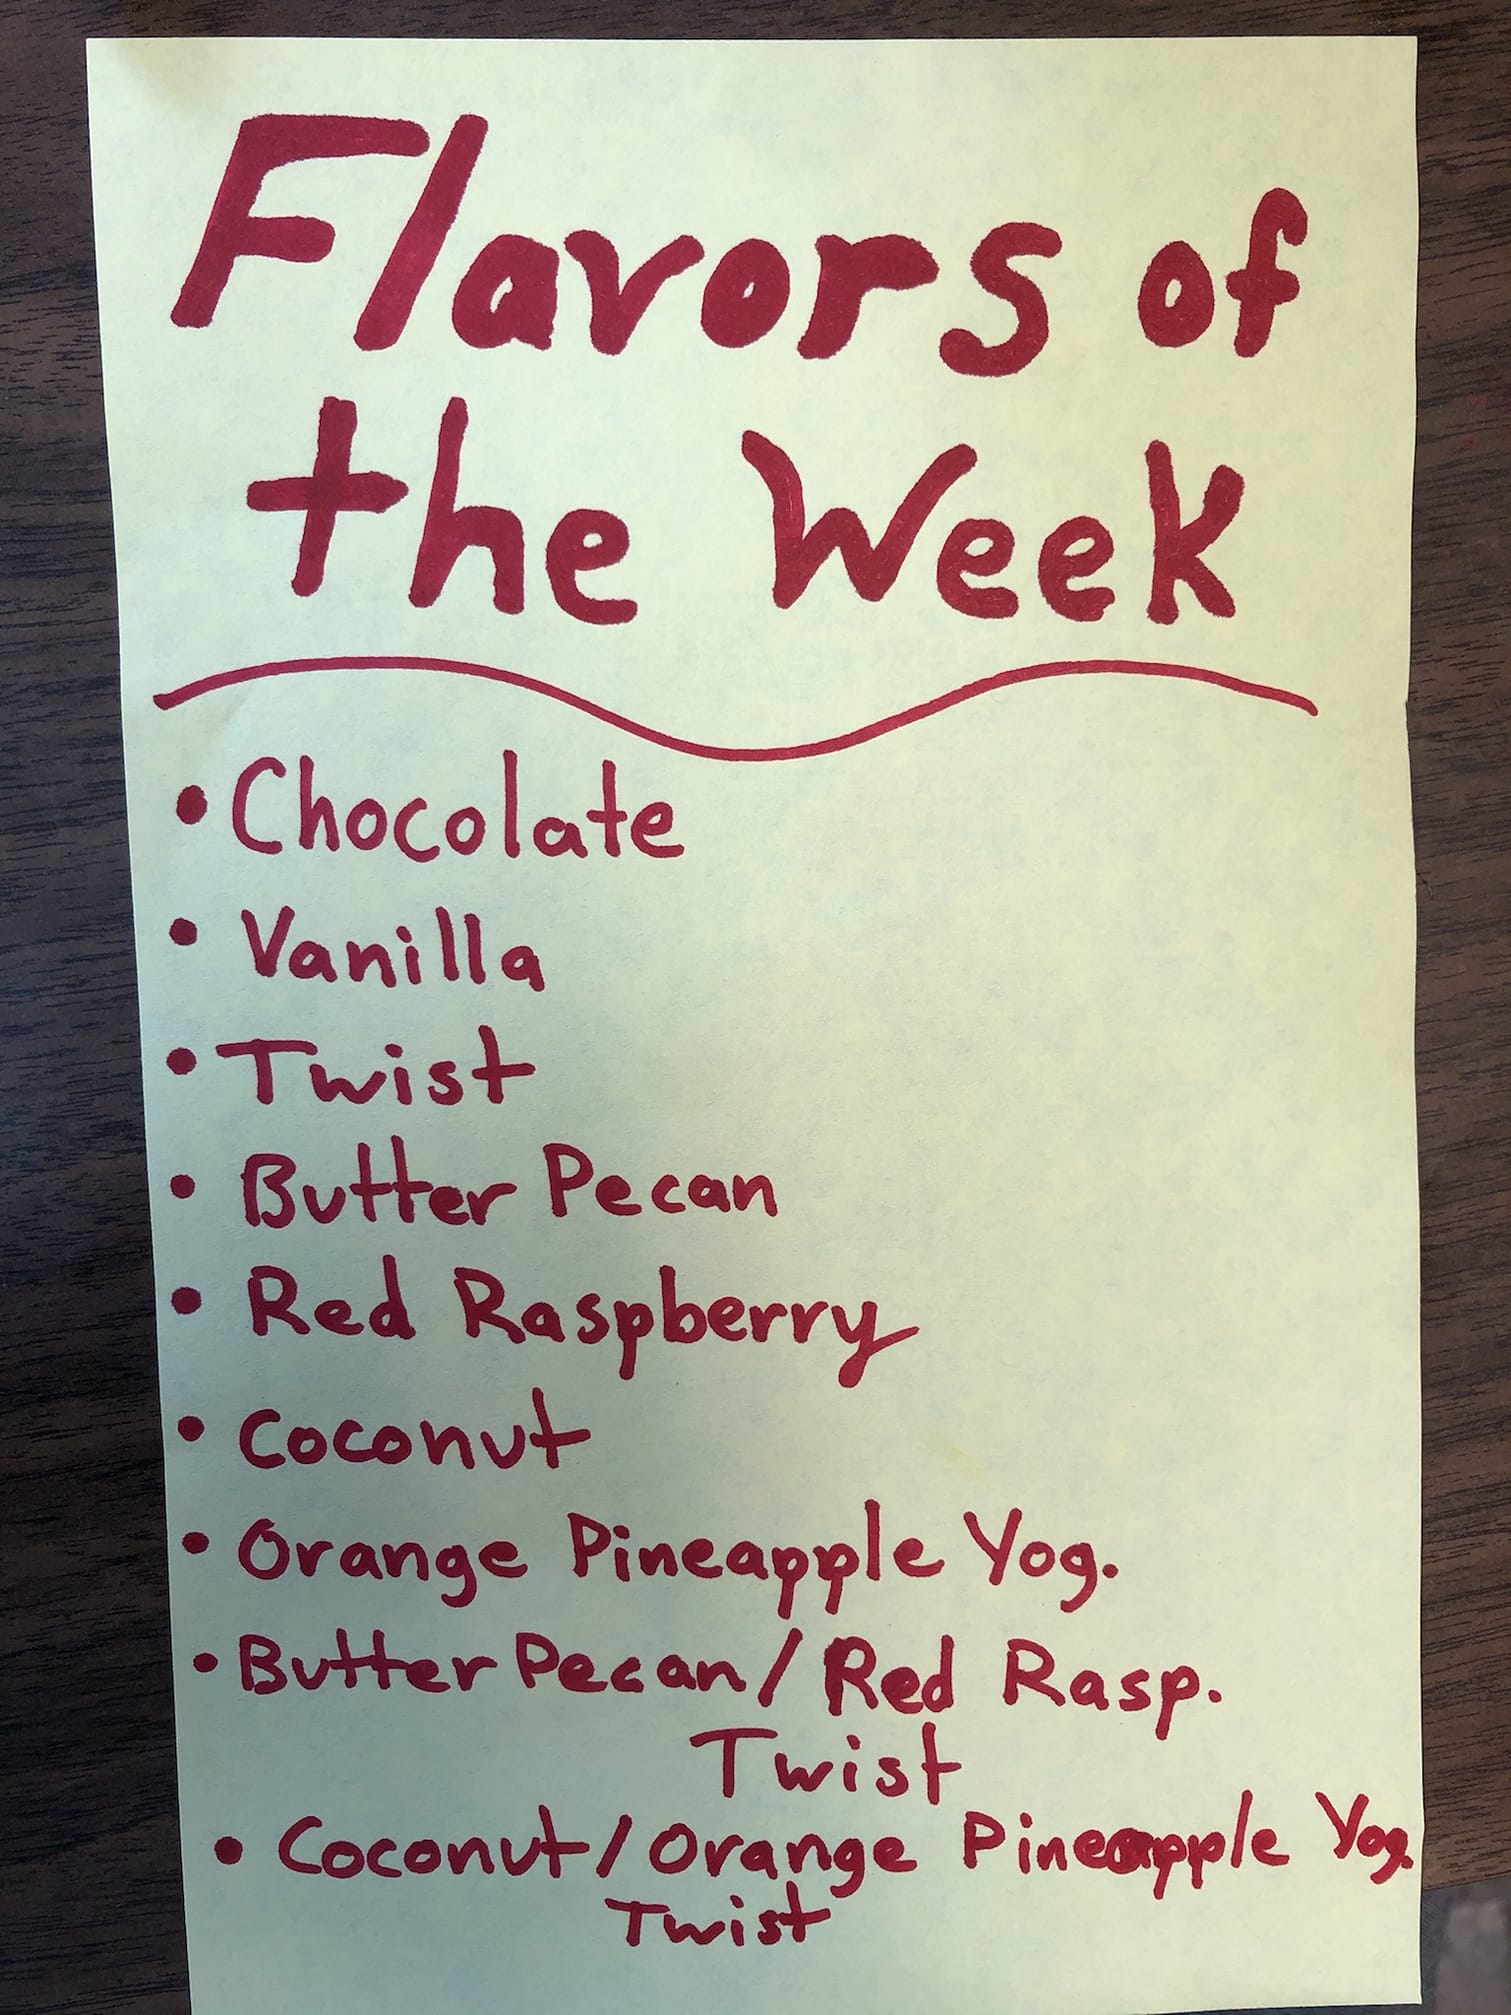 Flavors of
the Week
• Chocolate
• Vanilla
• Twist
• Butter Pecan
• Red Raspberry
• Coconut
• Orange Pineapple Yog.
• Butter Pecan / Red Rasp.
Twist
• Coconut / Orange Pineapple Yog.
Twist